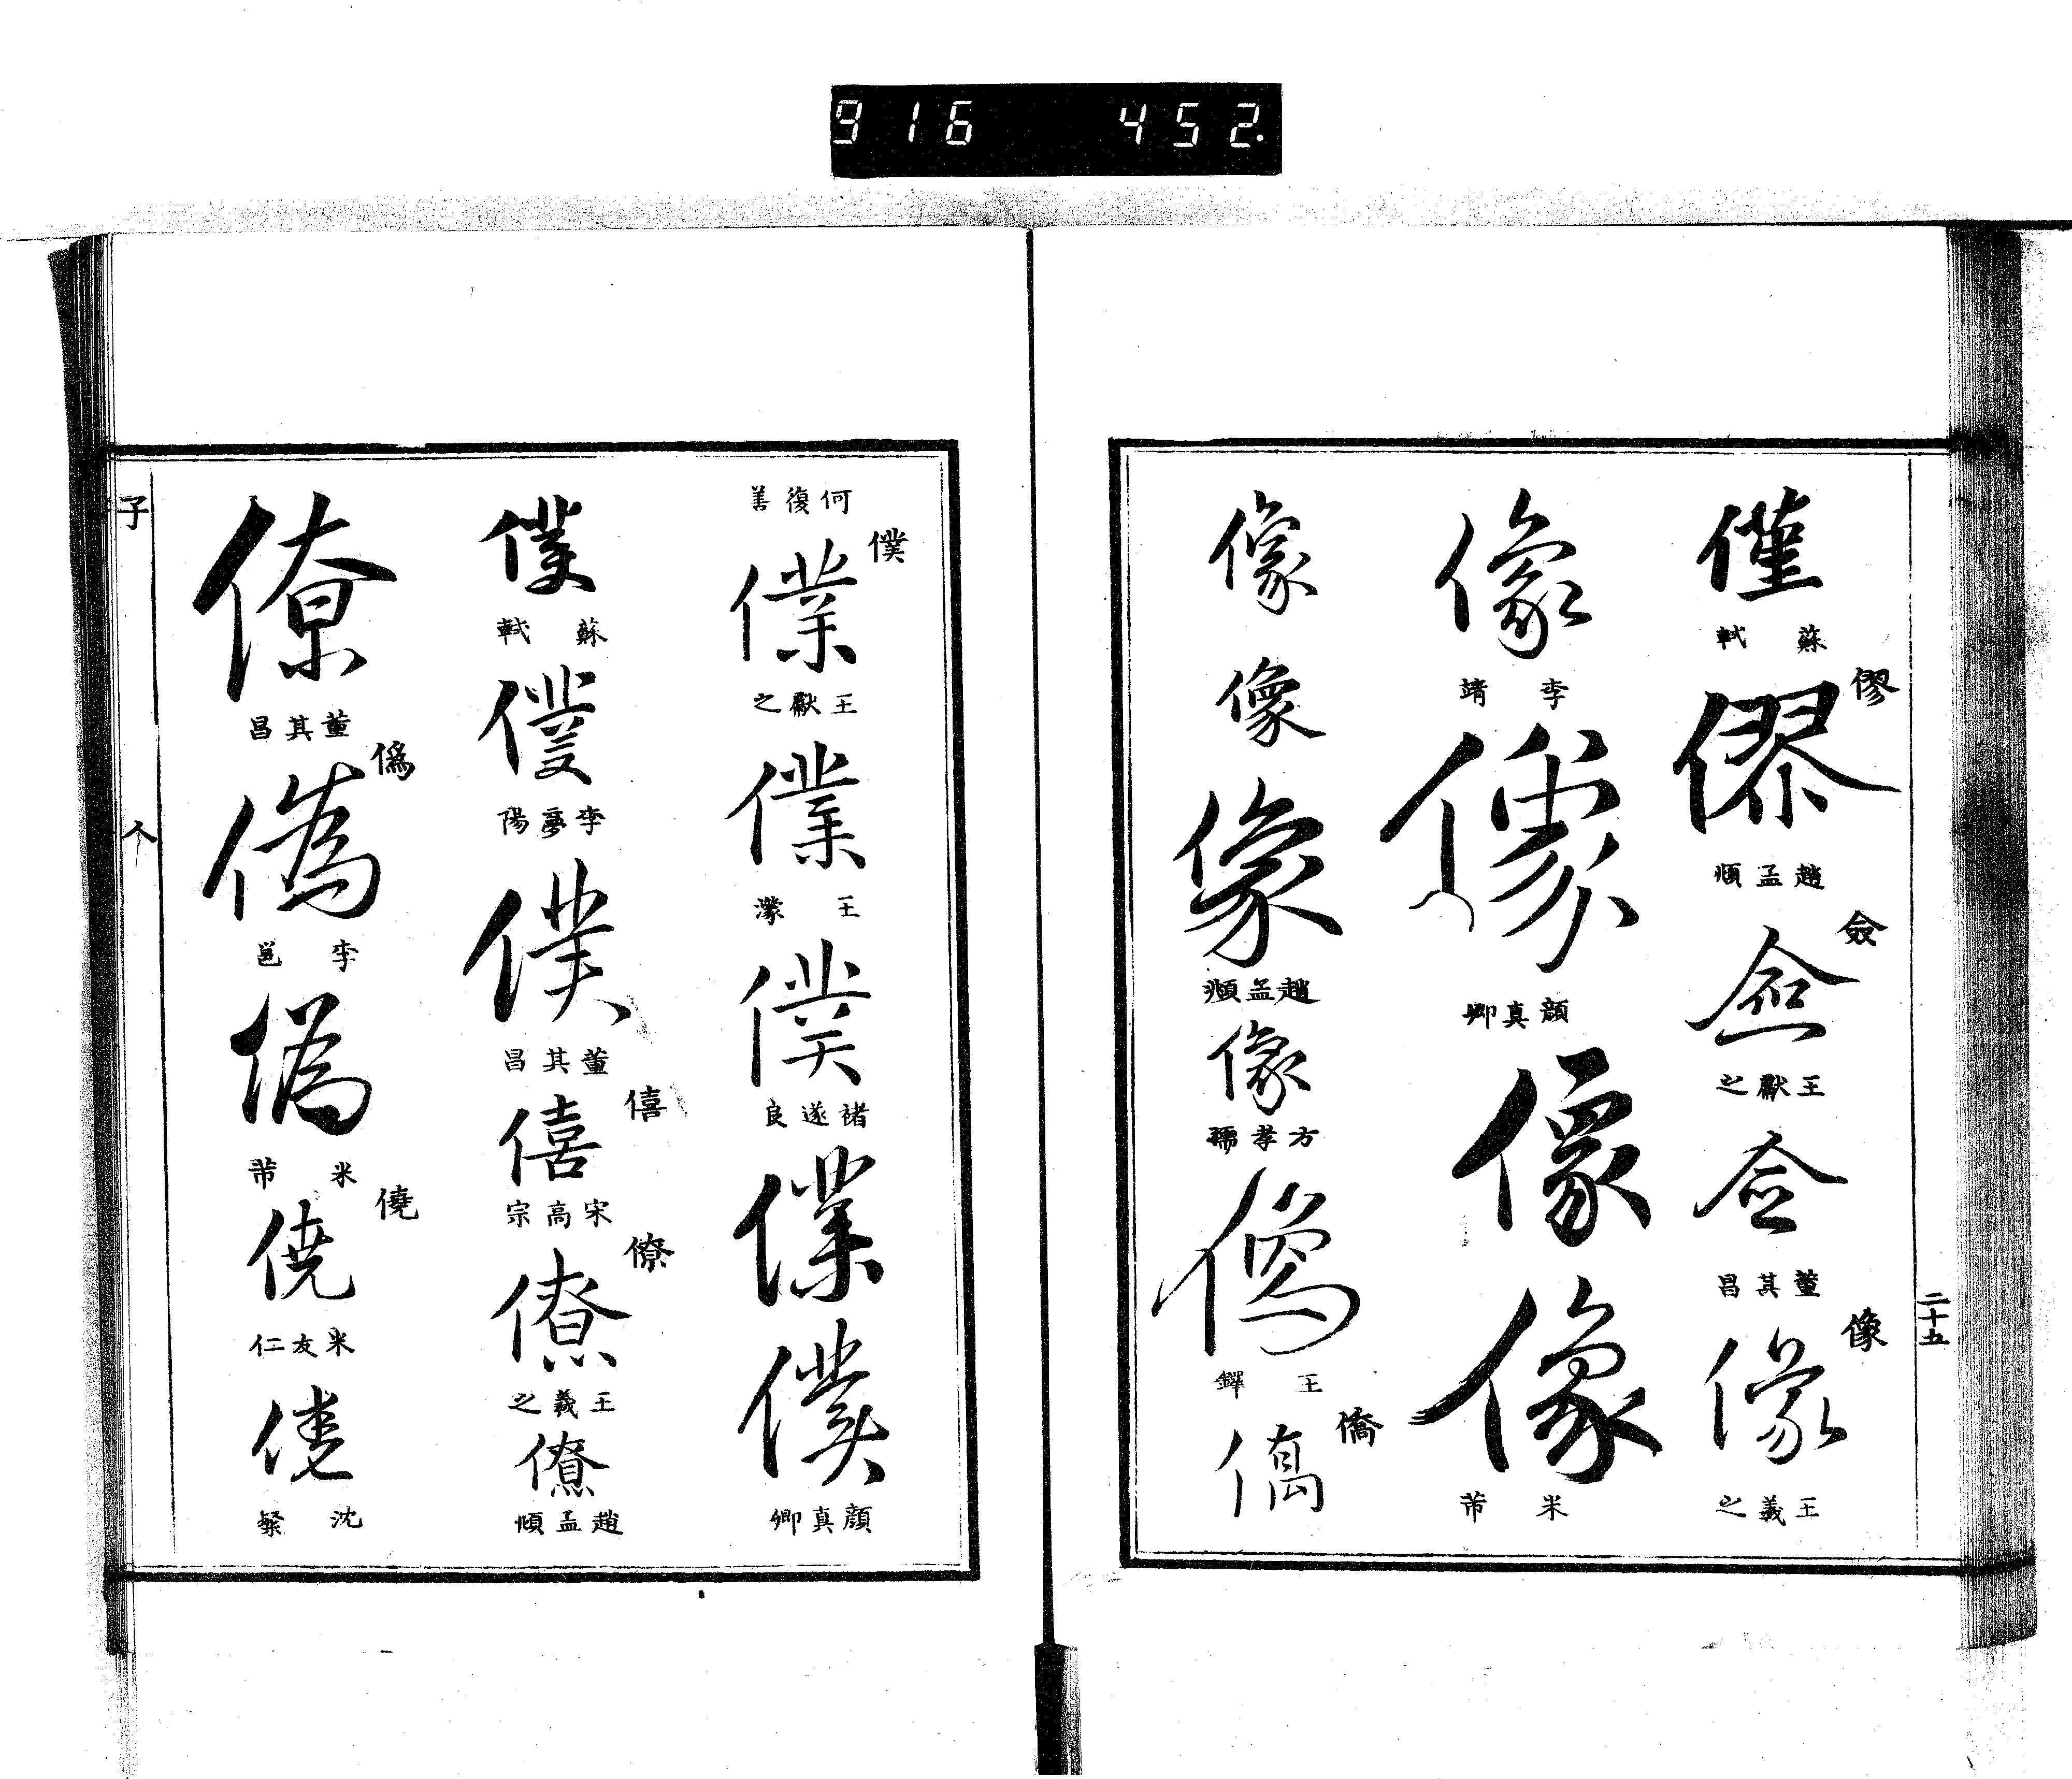 916 452.
二十五
僅
蘇軾
僇
僇
趙孟頫
僉
僉
王獻之
僉
董其昌
像
像
王羲之
像
李靖
像
顏真卿
像
像
米芾
像
像
像
趙孟頫
像
方孝孺
像
王鐸
僑
僑
何復善
僕
僕
王獻之
僕
王濛
僕
褚遂良
僕
僕
顏真卿
僕
蘇軾
僕
李夢陽
僕
董其昌
僖
僖
宋高宗
僚
僚
王羲之
僚
趙孟頫
僚
董其昌
僞
僞
李邕
僞
米芾
僥
僥
米友仁
僥
沈粲
子
人